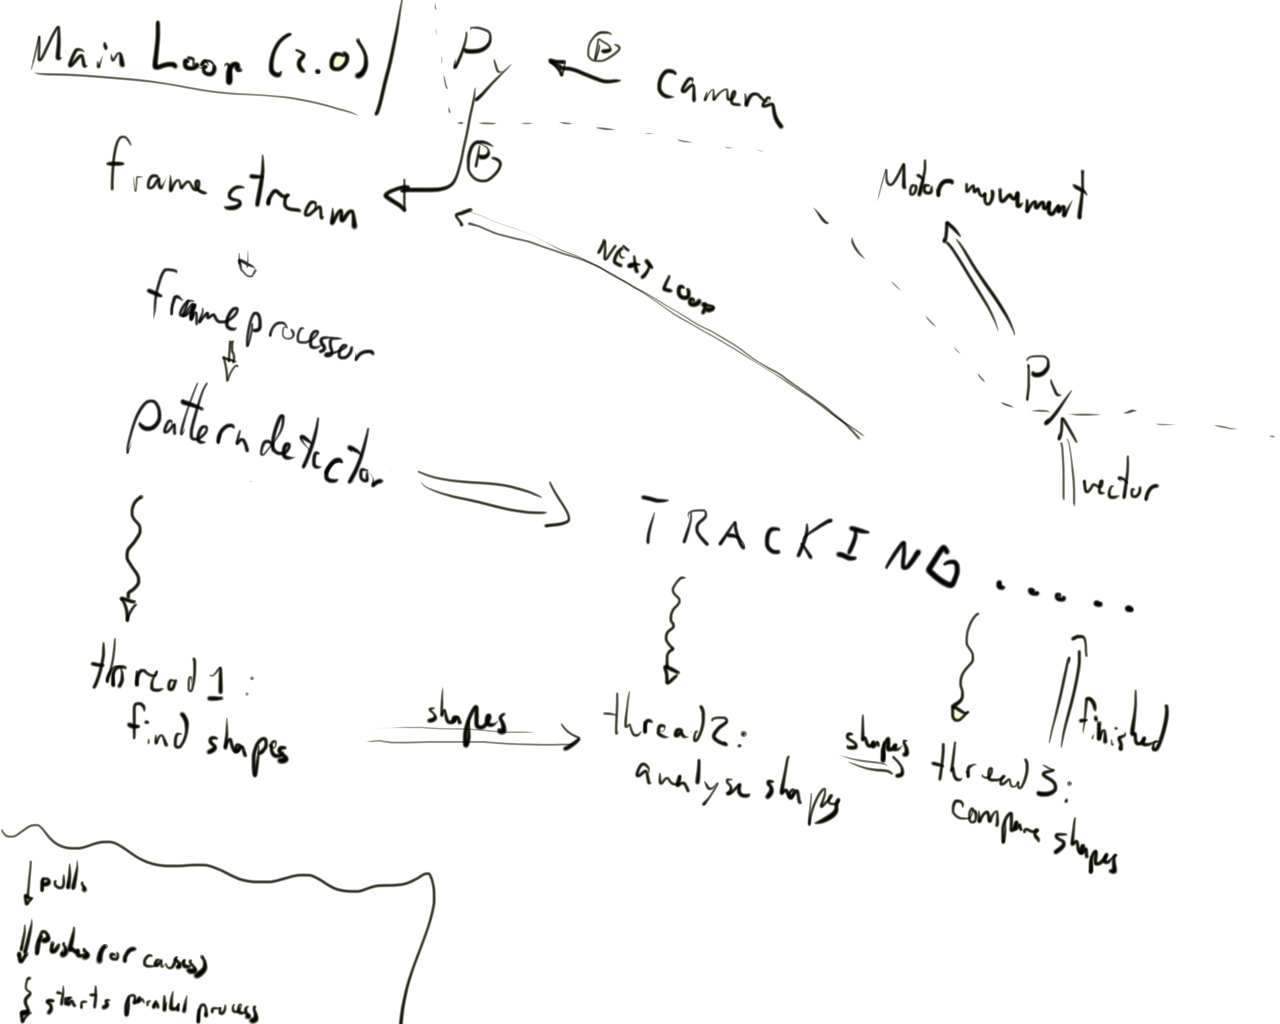 Main Loop (2.0)
Py
P
Camera
P
frame stream
Motor movement
NEXT LOOP
frame processor
Py
pattern detector
vector
TRACKING.....
thread 1:
find shapes
shapes
thread2:
analyse shapes
shapes
thread3:
compare shapes
finished
pulls
Pushes (or causes)
starts parallel process